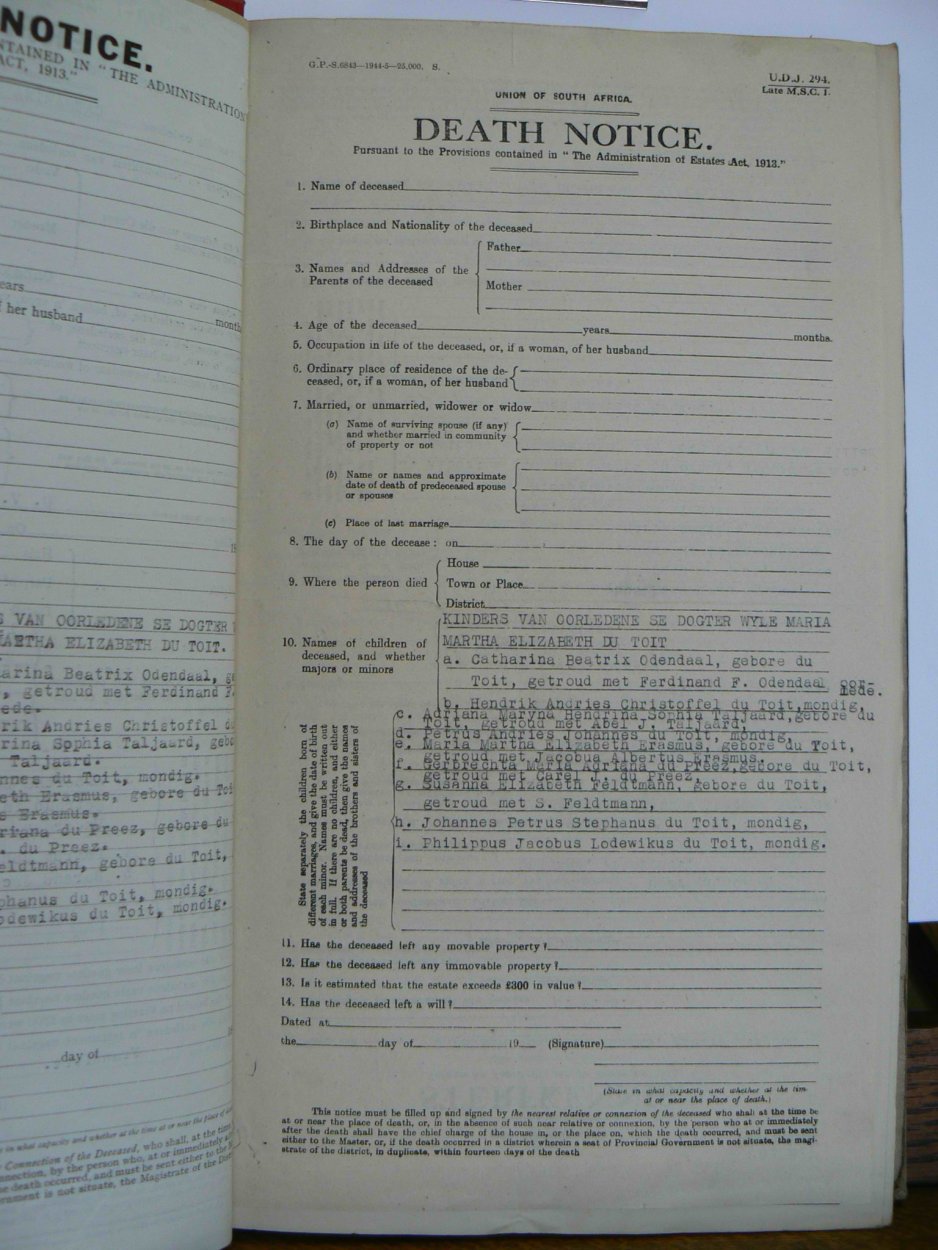 NOTICE.
NTAINED IN "THE ADMINISTRATION
ACT, 1913."
ears
f her husband
month
S VAN OORLEDENE SE DOGTER
MARTHA ELIZABETH DU TOIT.
arina Beatrix Odendaal,
, getroud met Ferdinand F.
ede.
rik Andries Christoffel d
rina Sophia Taljaard, gebo
Taljaard.
nnes du Toit, mondig.
eth Erasmus, gebore du Toi
s Erasmus.
riana du Preez, gebore du
. du Preez.
eldtmann, gebore du Toit,
phanus du Toit, mondig.
odewikus du Toit, mondig.
day of
e in what capacity and whether at the time or near the place of
Connection of the Deceased, who shall, at the time
nnection, by the person who, at or immediately
he death occurred, and must be sent either to the
ernment is not situate, the Magistrate of the Dis
G.P.-S.6843—1944-5—25,000. S.
U.D.J. 294.
Late M.S.C. 1.
UNION OF SOUTH AFRICA.
DEATH NOTICE.
Pursuant to the Provisions contained in "The Administration of Estates Act, 1913."
1. Name of deceased
2. Birthplace and Nationality of the deceased
3. Names and Addresses of the Parents of the deceased
Father
Mother
4. Age of the deceased years months.
5. Occupation in life of the deceased, or, if a woman, of her husband
6. Ordinary place of residence of the de-
ceased, or, if a woman, of her husband
7. Married, or unmarried, widower or widow
(a) Name of surviving spouse (if any)
and whether married in community
of property or not
(b) Name or names and approximate
date of death of predeceased spouse
or spouses
(c) Place of last marriage
8. The day of the decease: on
9. Where the person died
House
Town or Place
District
10. Names of children of
deceased, and whether
majors or minors
KINDERS VAN OORLEDENE SE DOGTER WYLE MARIA
MARTHA ELIZABETH DU TOIT
a. Catharina Beatrix Odendaal, gebore du
Toit, getroud met Ferdinand F. Odendaal oor-
lede.
b. Hendrik Andries Christoffel du Toit,mondig,
c. Adriana Maryna Hendrina Sophia Taljaard,gebore du
Toit, getroud met Abel J. Taljaard;
d. Petrus Andries Johannes du Toit, mondig,
e. Maria Martha Elizabeth Erasmus, gebore du Toit,
getroud met Jacobus Albertus Erasmus.
f. Gerbrechta Maria Adriana du Preez,gebore du Toit,
getroud met Carel J. du Preez,
g. Susanna Elizabeth Feldtmann, gebore du Toit,
getroud met S. Feldtmann,
h. Johannes Petrus Stephanus du Toit, mondig,
i. Philippus Jacobus Lodewikus du Toit, mondig.
State separately the children born of
different marriages, and give the date of birth
of each minor. Names must be written out
in full. If there are no children, and either
or both parents be dead, then give the names
and addresses of the brothers and sisters of
the deceased
11. Has the deceased left any movable property?
12. Has the deceased left any immovable property?
13. Is it estimated that the estate exceeds £300 in value?
14. Has the deceased left a will?
Dated at
the day of 19 (Signature)
(State in what capacity and whether at the tim.
at or near the place of death.)
This notice must be filled up and signed by the nearest relative or connexion of the deceased who shall at the time be
at or near the place of death, or, in the absence of such near relative or connexion, by the person who at or immediately
after the death shall have the chief charge of the house in, or the place on, which the death occurred, and must be sent
either to the Master, or, if the death occurred in a district wherein a seat of Provincial Government is not situate, the magi-
strate of the district, in duplicate, within fourteen days of the death